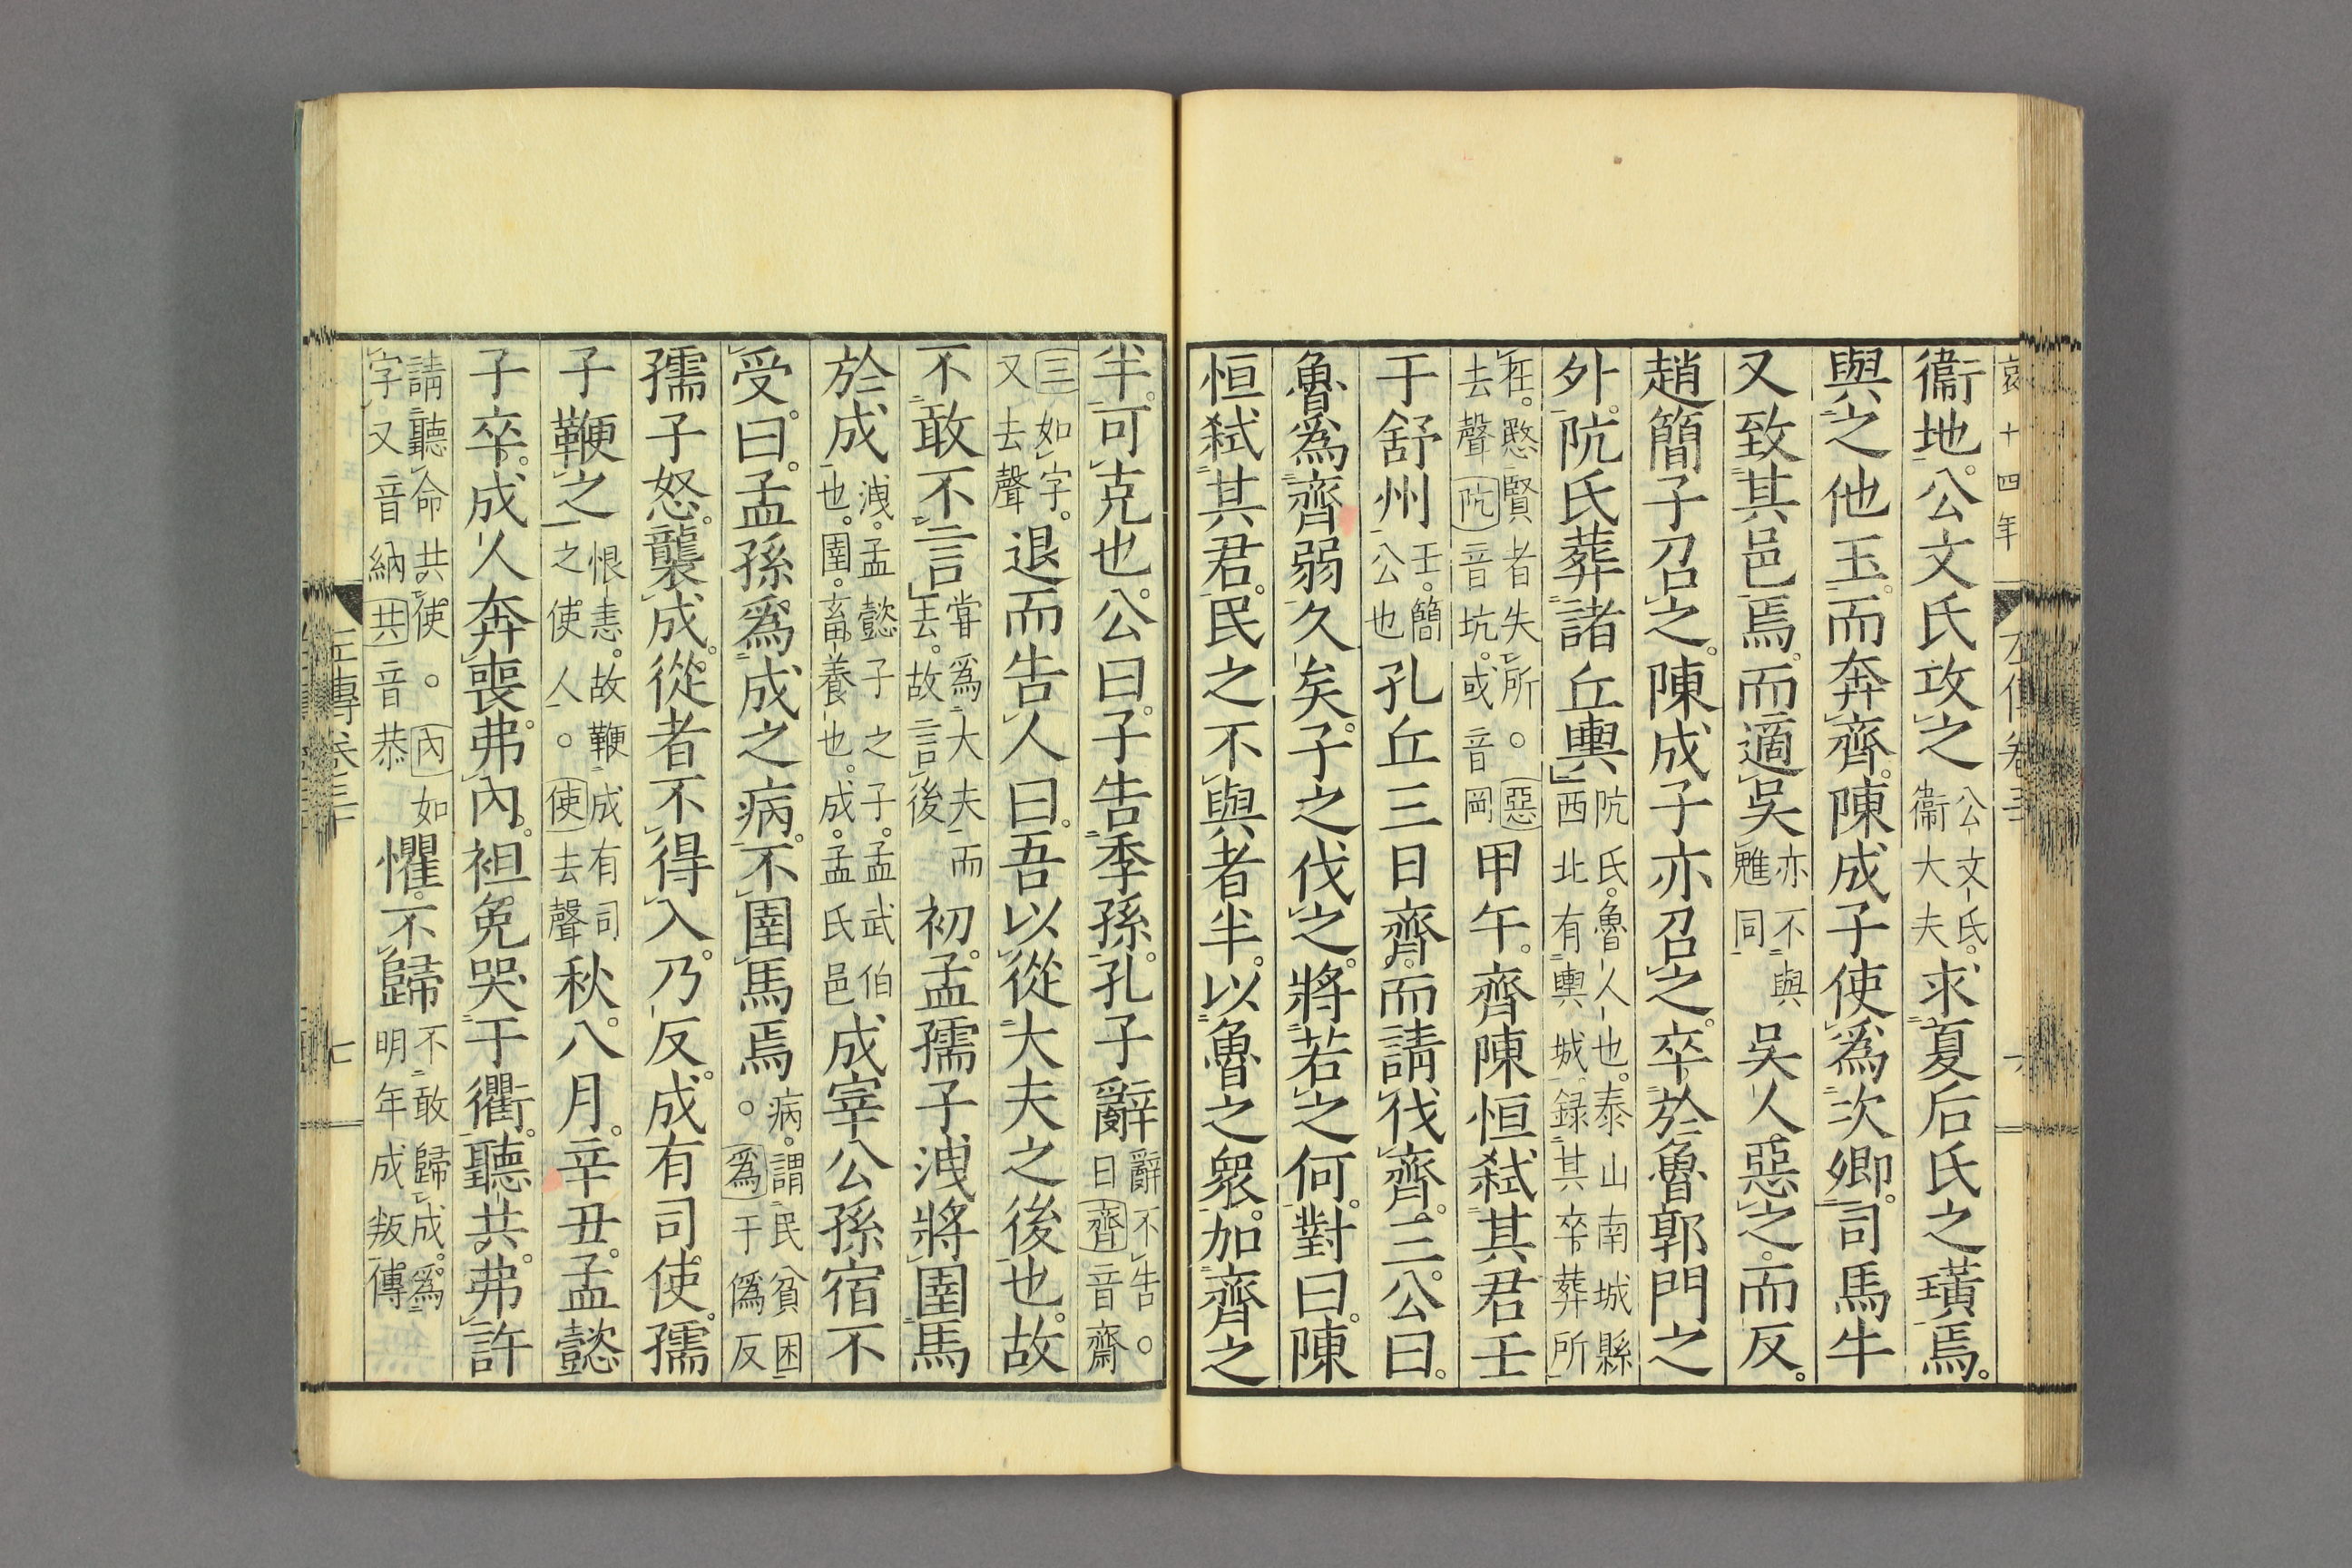 哀十四年
左傳卷三
衞地。公文氏攻之公文氏。衞大夫求夏后氏之璜焉。
與之他玉。而奔齊。陳成子使爲次卿。司馬牛
又致其邑焉。而適吳亦不與魋同吳人惡之。而反。
趙簡子召之。陳成子亦召之。卒於魯郭門之
外。阬氏葬諸丘輿阬氏。魯人也。泰山南城縣西北有輿城。録其卒葬所
在。愍賢者失所。惡去聲阬音坑。或音岡甲午。齊陳恒弑其君壬
于舒州壬。簡公也孔丘三日齊。而請伐齊。三。公曰。
魯爲齊弱久矣。子之伐之。將若之何。對曰。陳
恒弑其君。民之不與者半。以魯之衆。加齊之
半。可克也。公曰。子告季孫。孔子辭辭不告。曰齊音齋
三如字。又去聲退而告人曰。吾以從大夫之後也。故
不敢不言嘗爲大夫而去。故言後初。孟孺子洩將圉馬
於成洩。孟懿子之子。孟武伯也。圉。畜養也。成。孟氏邑成宰公孫宿不
受曰。孟孫爲成之病。不圉馬焉。病。謂民貧困爲于僞反
孺子怒。襲成。從者不得入。乃反。成有司使。孺
子鞭之恨恚。故鞭成有司之使人。使去聲秋。八月。辛丑。孟懿
子卒。成人奔喪。弗內。袒免哭于衢。聽共。弗許
請聽命共使。內如字。又音納共音恭懼。不歸不敢歸成。爲明年成叛傳
左傳卷三十
七